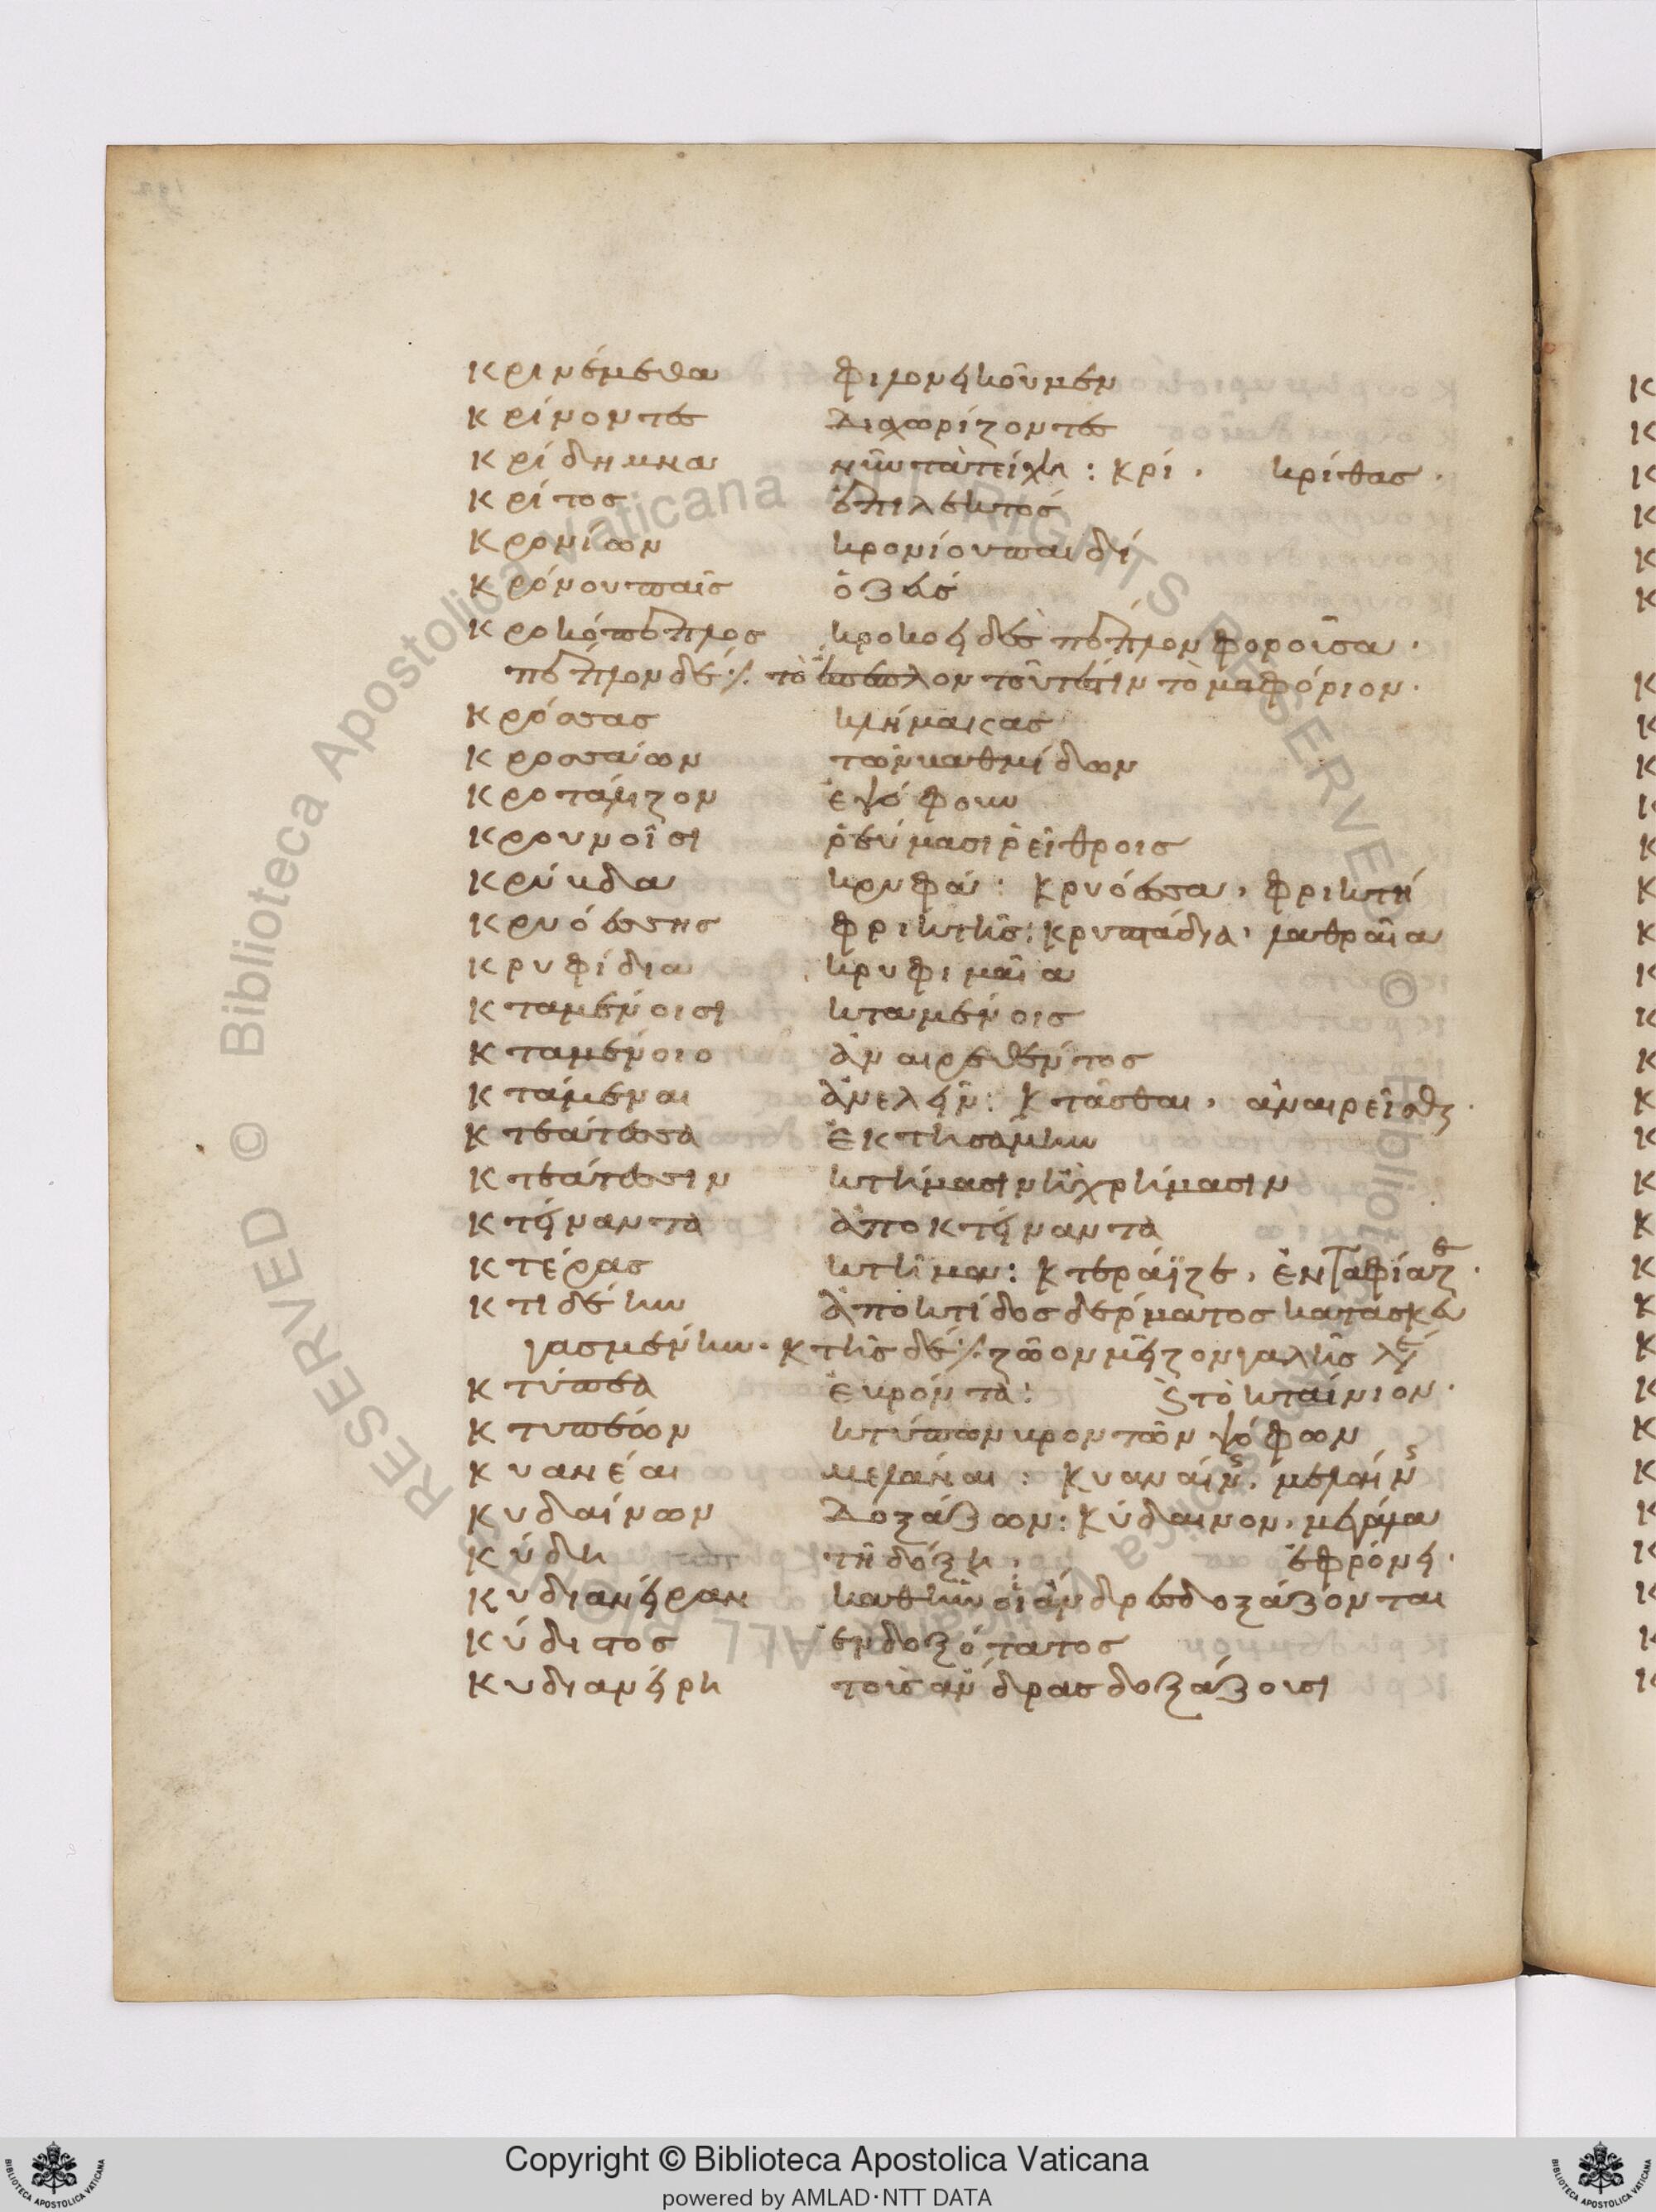 κρινέμεθα φιλονεικοῦμεν
κρίνοντες διαχωρίζοντες
κρίδημνα νῦν τὰ τείχη : κρί · κρίθας ·
κρίτος ἐπίλεκτος
κρονίων κρονίου παιδί
κρόνου παῖς ὁ ζεύς
κροκόπεπλος κροκοειδὲς πέπλον φοροῦσα ·
πέπλον δέ τὸ τουτέστιν τὸ μαφόριον ·
κρόσσας κλήμακας
κροσσαίων τῶν βαθμίδων
κροτάλιζον ἐψόφουν
κρουνοῖσι ῥεύμασι ῥείθροις
κρύβδα κρυφά : κρυόεσσα · φρικτή
κρυοέσσης φρικτῆς : κρυπτάδια · λαθραῖα
κρυφίδια κρυφιμαῖα
κταμένοισι κταμένοις
κταμένοιο ἀναιρεθέντος
κτάμεναι ἀνελεῖν : κτᾶσθαι · ἀναιρεῖσθαι ·
κτεάτεσσα ἐκτησάμην
κτεάτεσσιν κτήμασιν ἢ χρήμασιν
κτείναντα ἀποκτείναντα
κτέρας κτῆμα : κτεράϊζε · ἐνταφίαζε ·
κτιδέην ἀπὸ κτίδος δέρματος κατασκε
γασμένην · κτὶς δέ ζῶον μεῖζον γαλῆς λέγει
κτύπεα ἐκρόντα : τὸ κταίνιον ·
κτυπέων κτύπων κροντῶν ψόφων
κυανέαι μέλαναι : κυαναίης · μελαίνης
κυδαίνων δοξάζων : κύδαινον · μεγάλα
κύδη τῇ δόξῃ · ἐφρόνει ·
κυδιανείραν καθ' ἣν οἱ ἄνδρες δοξάζονται
κύδιστος ἐνδοξότατος
κυδιανείρη τοὺς ἄνδρας δοξάζουσι
Copyright © Biblioteca Apostolica Vaticana
powered by AMLAD·NTT DATA